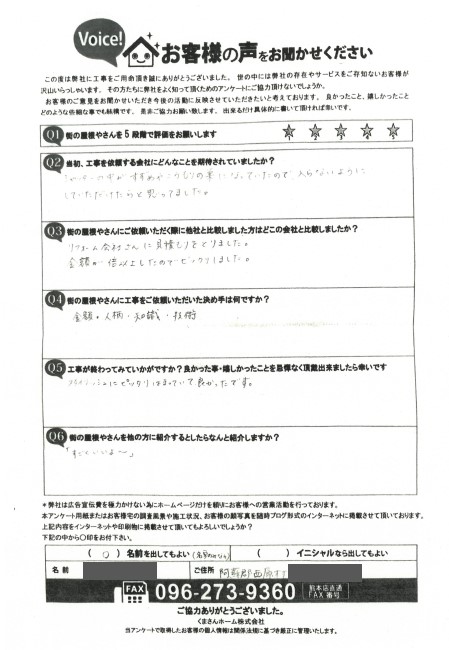 Voice!
お客様の声をお聞かせください
この度は弊社に工事をご用命頂き誠にありがとうございました。世の中には弊社の存在やサービスをご存知ないお客様が
沢山いらっしゃいます。その方たちに弊社をよく知って頂くためのアンケートにご協力頂けないでしょうか。
お客様のご意見をお聞かせいただき今後の活動に反映させていただきたいと考えております。良かったこと、嬉しかったこと
どのような些細な事でも結構です。是非ご協力お願い致します。出来るだけ具体的に書いて頂ければ幸いです。
Q1 街の屋根やさんを5段階で評価をお願いします
1 2 3 4 5
Q2 当初、工事を依頼する会社にどんなことを期待されていましたか?
の中がすずめやこうもりの巣になっていたので、入らないように
していただけたらと思ってました。
Q3 街の屋根やさんにご依頼いただく際に他社と比較しました方はどこの会社と比較しましたか?
リフォーム会社さんに見積もりをとりました。
金額が倍以上したのでビックリしました。
Q4 街の屋根やさんに工事をご依頼いただいた決め手は何ですか?
金額・人柄・知識・技術
Q5 工事が終わってみていかがですか?良かった事・嬉しかったことを忌憚なく頂戴出来ましたら幸いです
にピックリはまっていて良かったです。
Q6 街の屋根やさんを他の方に紹介するとしたらなんと紹介しますか?
「すごくいいよ〜」
*弊社は広告宣伝費を極力かけない為にホームページだけを頼りにお客様への営業活動を行っております。
本アンケート用紙またはお客様宅の調査風景や施工状況、お客様の顔写真を随時ブログ形式のインターネットに掲載させて頂いております。
上記内容をインターネットや印刷物に掲載させて頂いてもよろしいでしょうか?
下記の中から○印をお付下さい。
( ○ ) 名前を出してもよい ( ) イニシャルなら出してもよい
名前 ご住所 阿蘇郡西原村
FAX 096-273-9360 熊本店直通 FAX番号
ご協力ありがとうございました。
くまさんホーム株式会社
当アンケートで取得したお客様の個人情報は関係法規に基づき厳正に管理いたします。